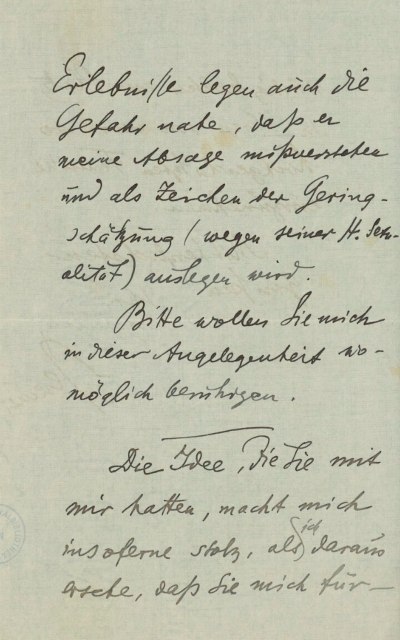 Erlebnisse legen auch die
Gefahr nahe, daß er
meine Absage mißverstehen
und als Zeichen der Gering-
schätzung (wegen seiner H. Sexu-
alität) auslegen wird.
Bitte wollen Sie mich
in dieser Angelegenheit wo-
möglich beruhigen.
Die Idee, die Sie mit
mir hatten, macht mich
insoferne stolz, als ich daraus
ersehe, daß Sie mich für-